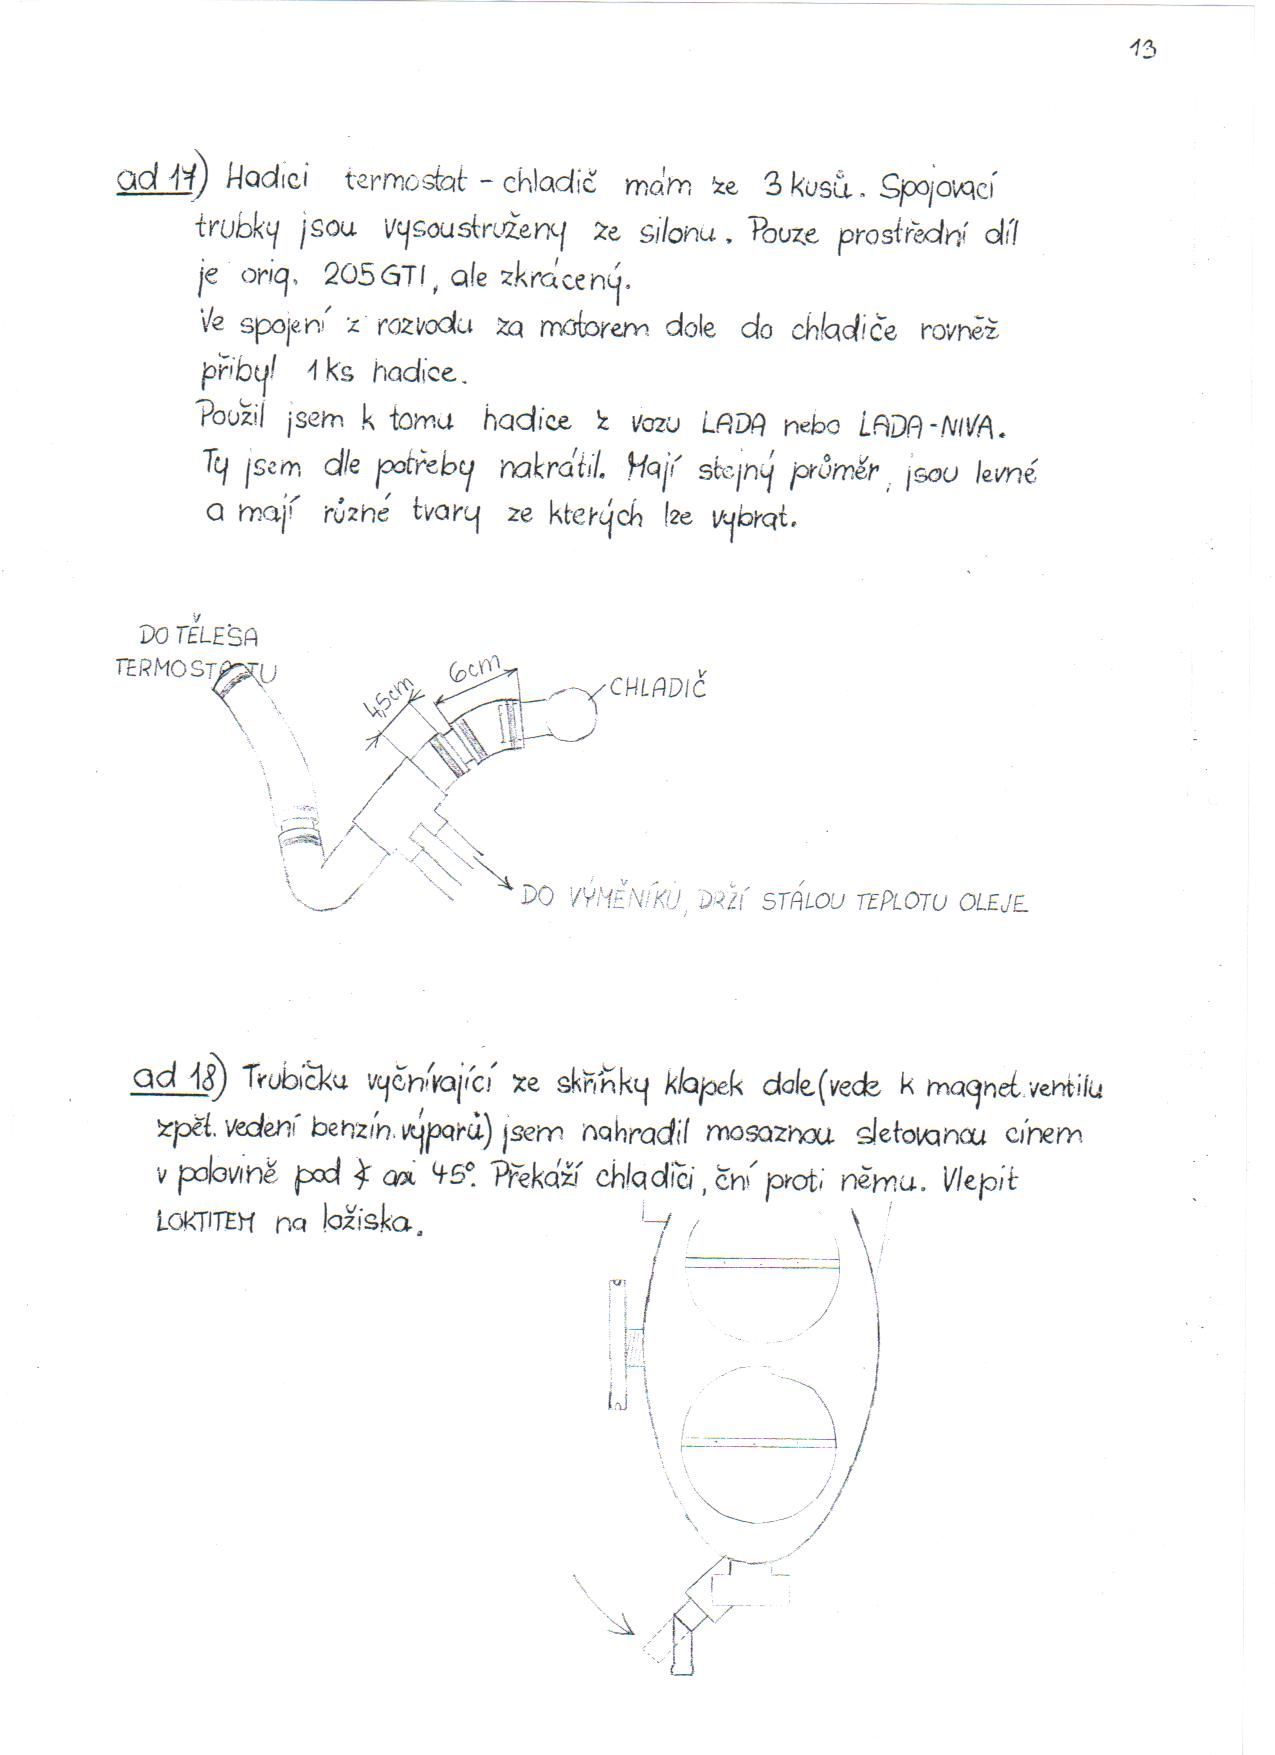 13
ad 17) Hadici termostat - chladič mám ze 3 kusů. Spojovací
trubky jsou vysoustruženy ze silonu. Pouze prostřední díl
je orig. 205GTI, ale zkrácený.
Ve spojení z rozvodu za motorem dole do chladiče rovněž
přibyl 1ks hadice.
Použil jsem k tomu hadice z vozu LADA nebo LADA-NIVA.
Ty jsem dle potřeby nakrátil. Mají stejný průměr, jsou levné
a mají různé tvary ze kterých lze vybrat.
DO TĚLESA
TERMOSTATU
4,5cm
6cm
CHLADIČ
DO VÝMĚNÍKU, DRŽÍ STÁLOU TEPLOTU OLEJE
ad 18) Trubičku vyčnívající ze skříňky klapek dole (vede k magnet. ventilu
zpět. vedení benzín. výparů) jsem nahradil mosaznou sletovanou cínem
v polovině pod ∢ asi 45°. Překáží chladiči, ční proti němu. Vlepit
LOKTITEM na ložiska.